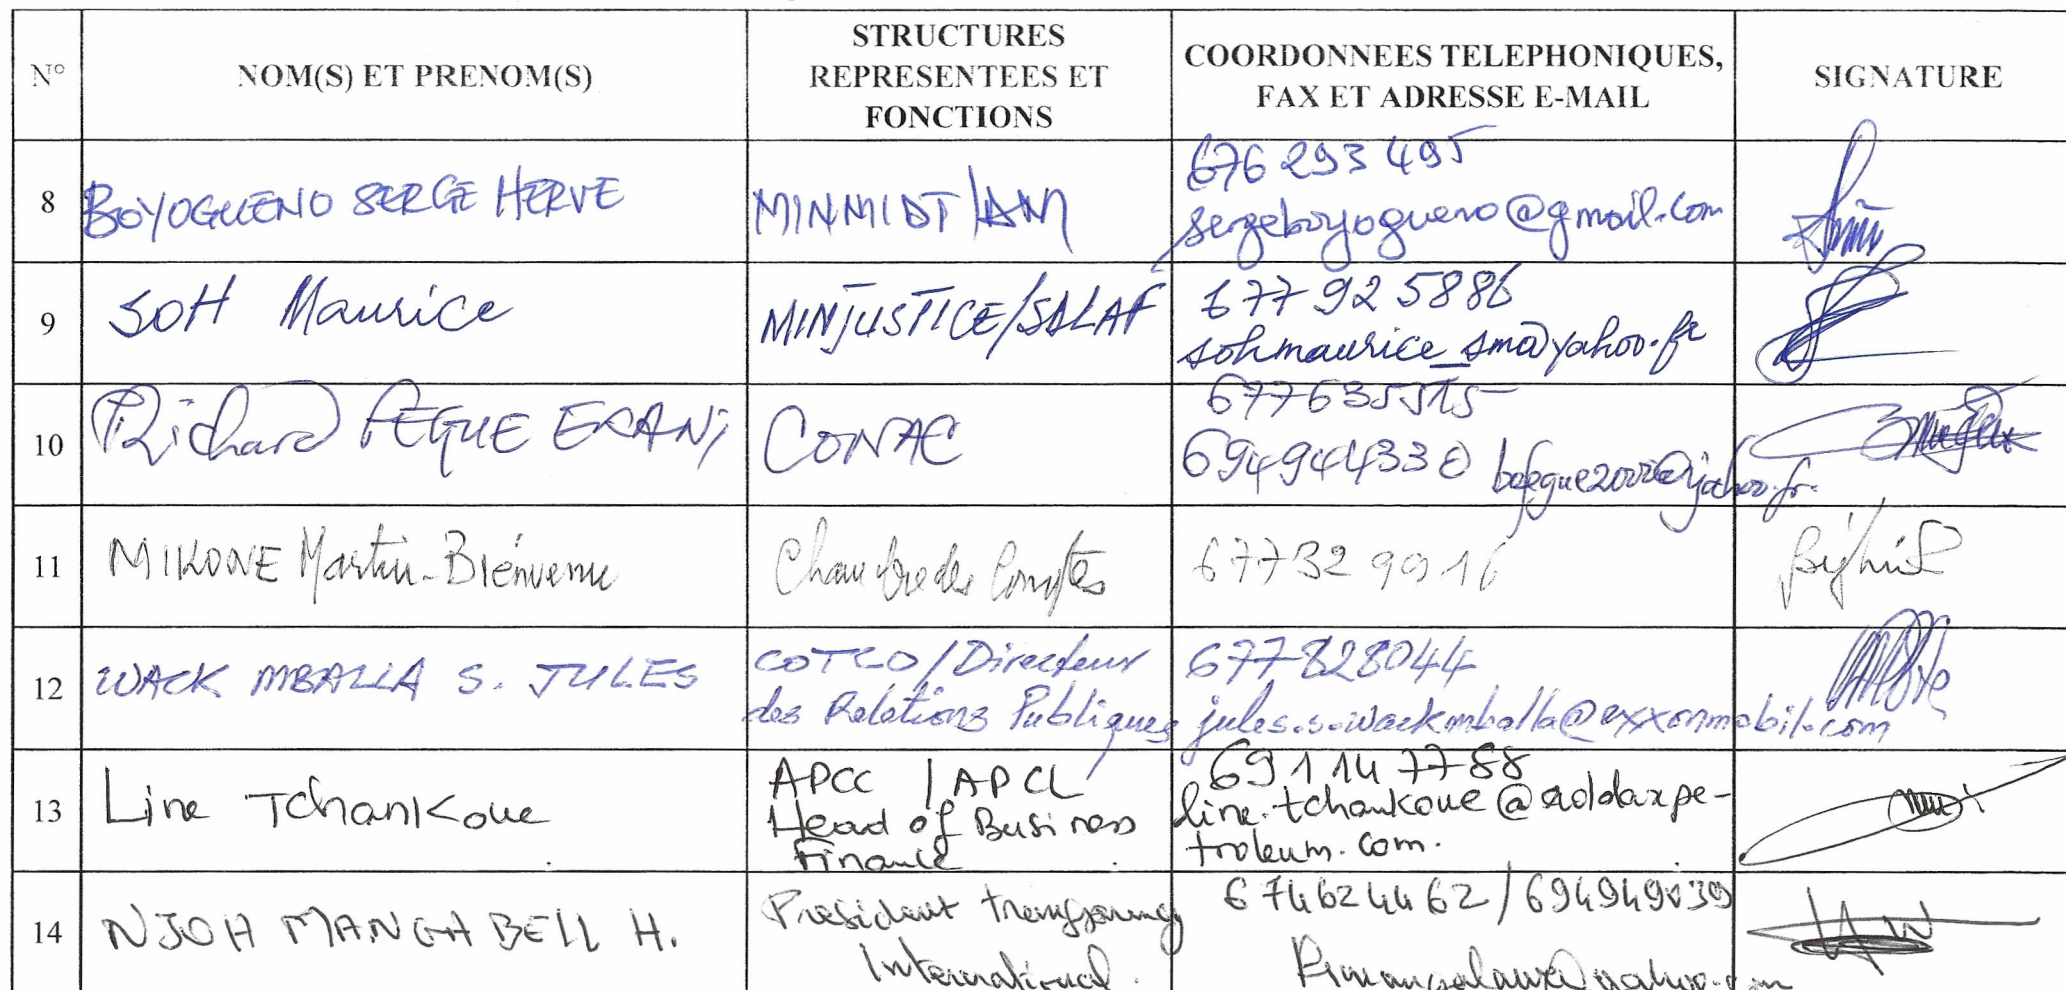 N° NOM(S) ET PRENOM(S) STRUCTURES REPRESENTEES ET FONCTIONS COORDONNEES TELEPHONIQUES, FAX ET ADRESSE E-MAIL SIGNATURE
8 BOYOGUENO SERGE HERVE MINMIDT/AM 676 293 495
sergeboyogueno@gmail.com
9 SOH Maurice MINJUSTICE/SDLAF 677 92 5886
sohmaurice_sma@yahoo.fr
10 Richard FEGUE EKANI CONAC 677635515
694944330
11 MIKONE Martin-Bienvenu Chambre des Comptes 677329916
12 WACK MBALLA S. JULES COTCO/Directeur
des Relations Publiques
677828044
jules.s.wackmballa@exxonmobil.com
13 Line Tchankoue APCC / APCL
Head of Business
Finance
691147788
line.tchankoue@addaxpe-
troleum.com.
14 NJOH MANGA BELL H. President Transparency
International.
674624462/694949039